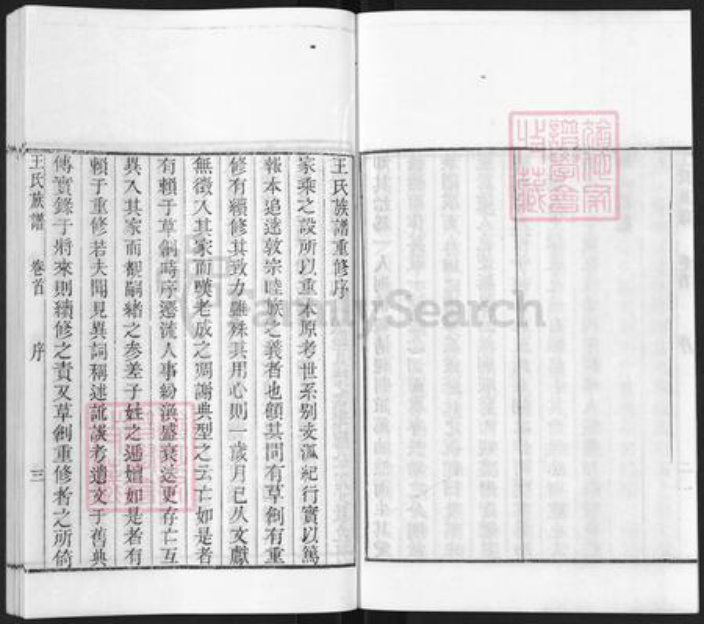 王氏族譜重修序
家乘之設所以重本原考世系別支派紀行實以篤
報本追遠敦宗睦族之義者也顧其間有草創有重
修有續修其致力雖殊其用心則一歲月已久文獻
無徵入其家而嘆老成之凋謝典型之云亡如是者
有賴于草創時序遷流人事紛渙盛衰迭更存亡互
異入其家而覩嗣緒之參差子姓之遞嬗如是者有
賴于重修若夫聞見異詞稱述訛誤考遺文于舊典
傳實錄于將來則續修之責又草創重修者之所倚
王氏族譜 卷首 序 三
FamilySearch